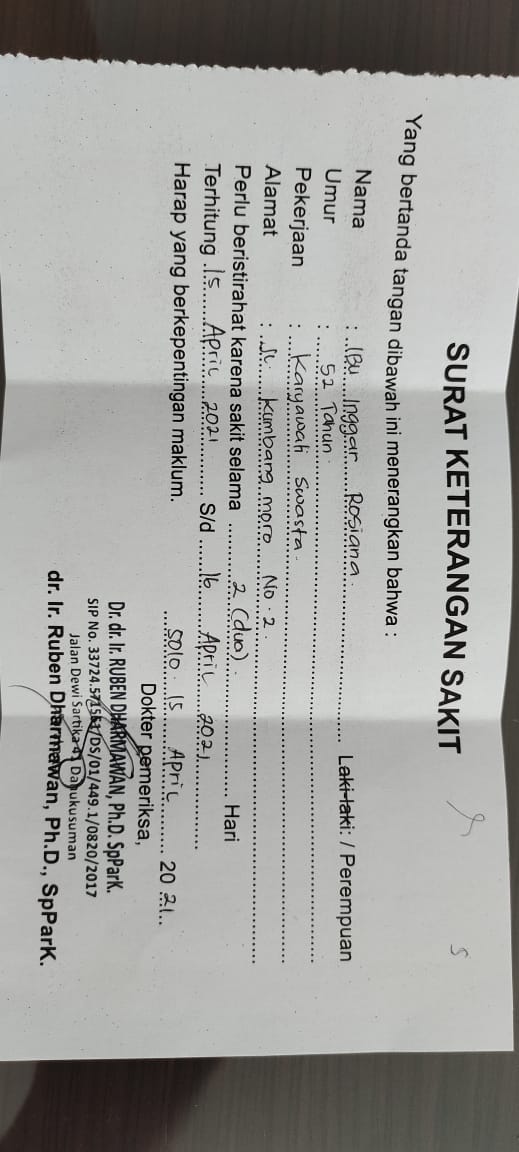 SURAT KETERANGAN SAKIT
Yang bertanda tangan dibawah ini menerangkan bahwa :
Nama : IBu Inggar Rosiana. Laki-laki: / Perempuan
Umur : 52 Tahun.
Pekerjaan : Karyawati Swasta.
Alamat : JL. Kumbang moro No. 2.
Perlu beristirahat karena sakit selama 2 (dua). Hari
Terhitung 15 April 2021 S/d 16 April 2021
Harap yang berkepentingan maklum.
Solo. 15 April 2021
Dokter pemeriksa,
Dr. dr. Ir. RUBEN DHARMAWAN, Ph.D. SpParK.
SIP No. 33724.57151/DS/01/449.1/0820/2017
Jalan Dewi Sartika Danukusuman
dr. Ir. Ruben Dharmawan, Ph.D., SpParK.